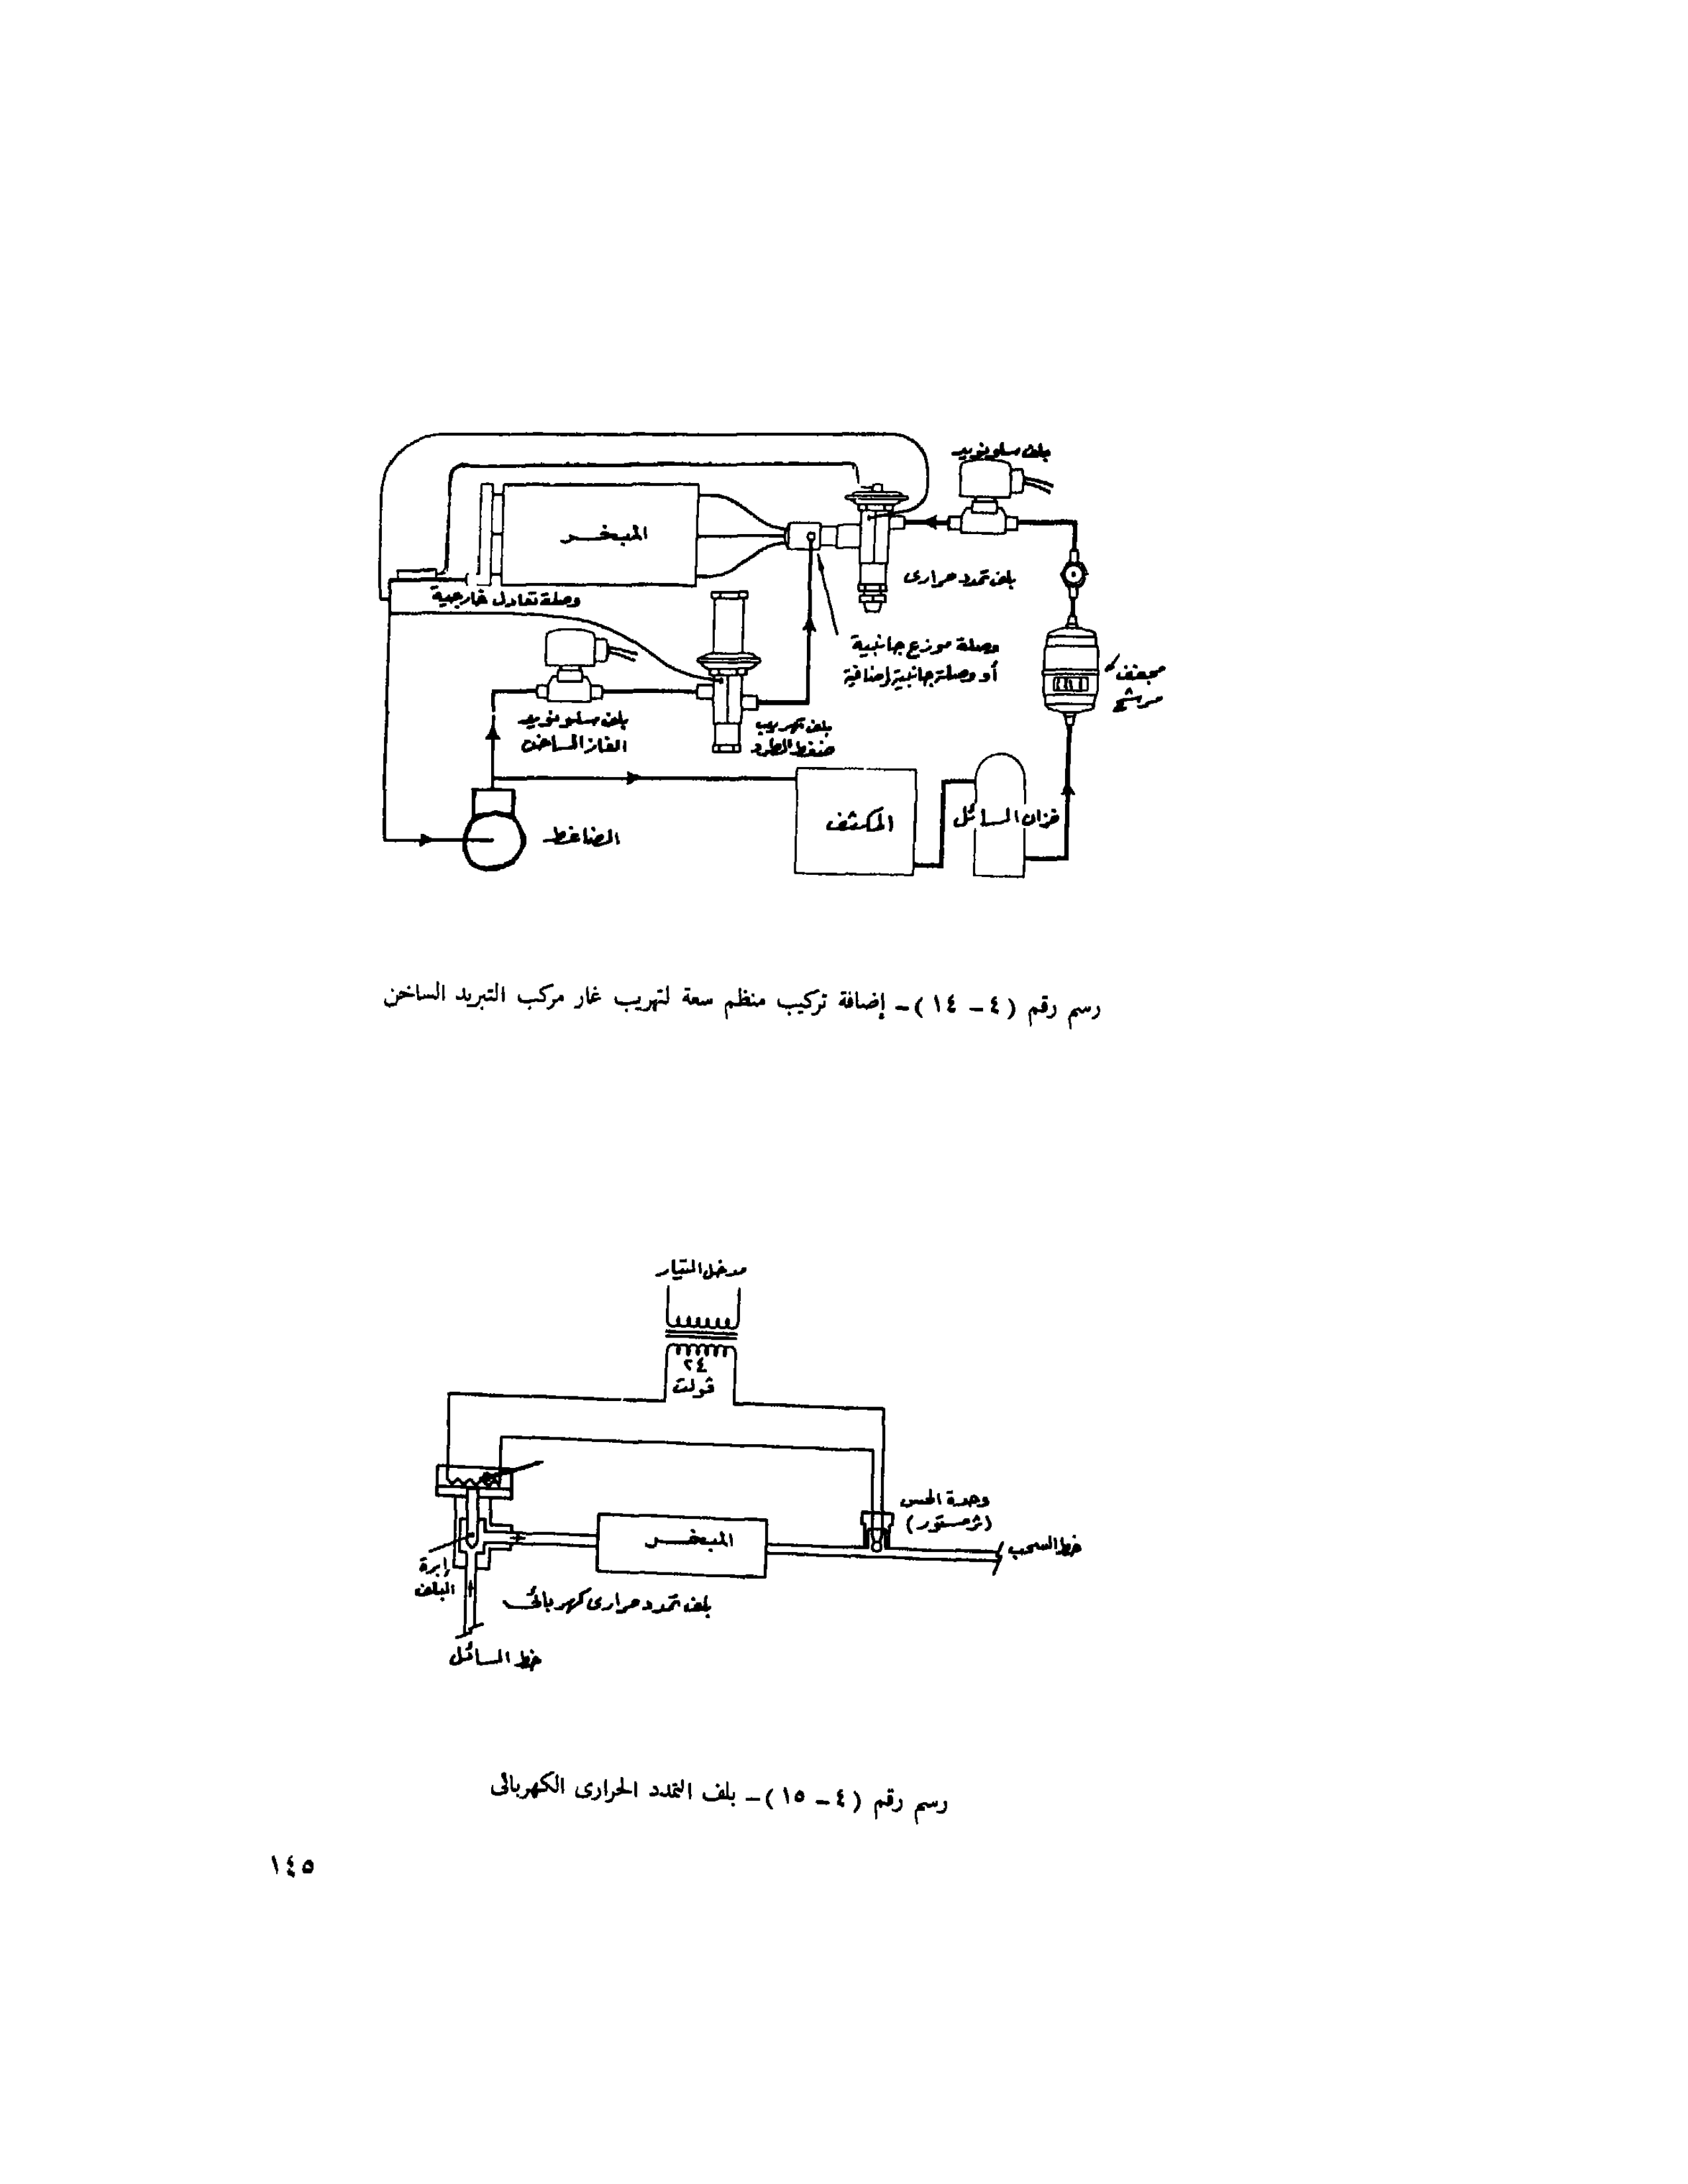 بلف سلونويد
المبخر
بلف تمدد حرارى
وصلة تعادل خارجية
وصلة موزع جانبية
أو وصلة جانبية إضافية
مجفف
مرشح
بلف سلونويد
الغاز الساخن
بلف تهريب
ضغط الطرد
المكثف
خزان السائل
الضاغط
رسم رقم (٤ – ١٤) – إضافة تركيب منظم سعة لتهريب غار مركب التبريد الساخن
مدخل التيار
٢٤
ڤولت
وحدة الحس
(ثرمستور)
خط السحب
المبخر
إبرة
البلف
بلف تمدد حرارى كهربائى
خط السائل
رسم رقم (٤ – ١٥) – بلف التمدد الحرارى الكهربائى
١٤٥